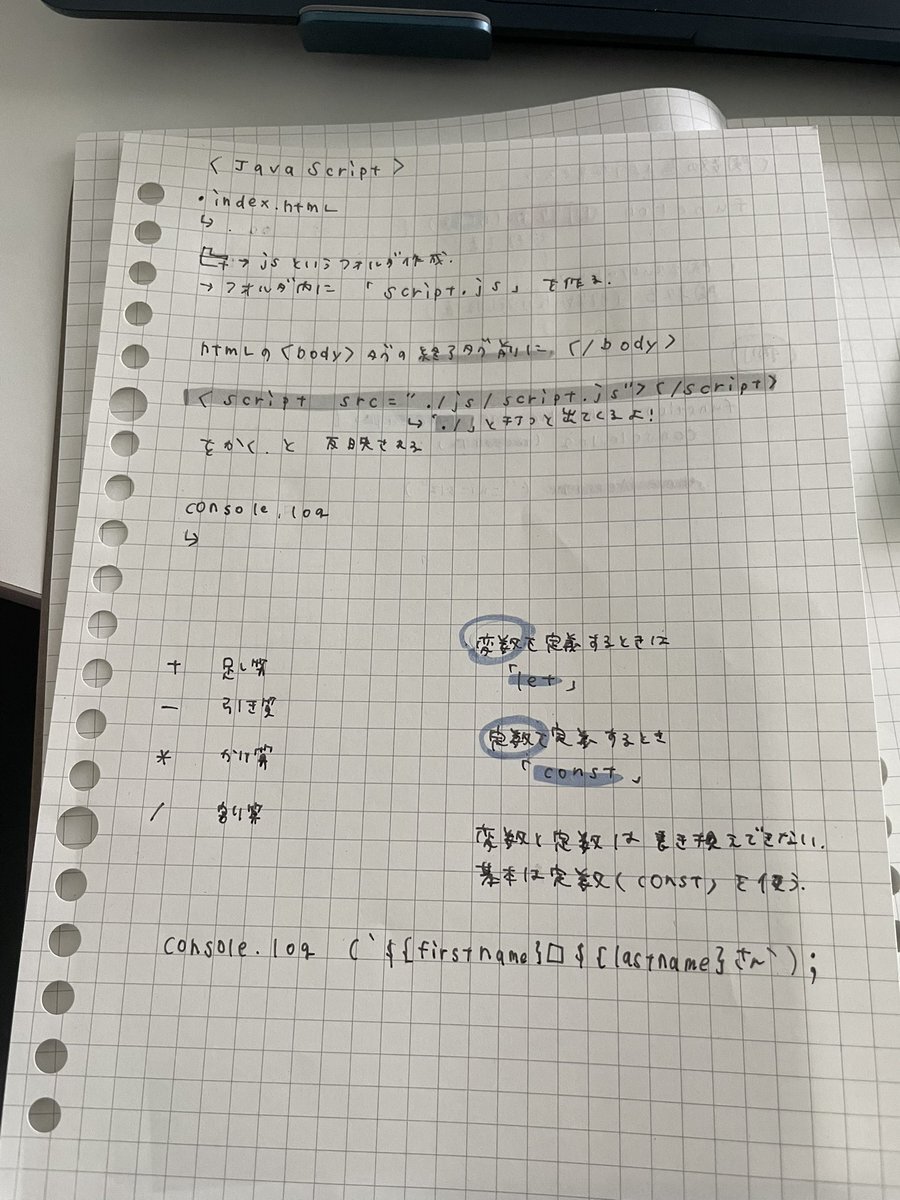 < JavaScript >
・index.html
↳
→ jsというフォルダ作成.
→ フォルダ内に 「script.js」 を作る.
htmlの<body>タグの終了タグ前に、</body>
<script src="./js/script.js"></script>
↳ 「./」と打つと出てくるよ!
と 反映される
console.log
↳
+ 足し算
− 引き算
* かけ算
/ 割り算
変数を定義するときは
「let」
定数で定義するとき
「const」
変数と定数は書き換えできない.
基本は定数(const)を使う.
console.log (`${firstname}□${lastname}さん`);